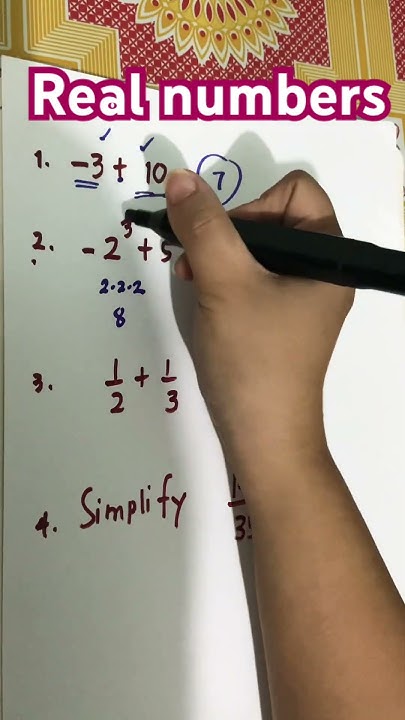 Real numbers
1. -3 + 10 7
2. -2³ + 5
2·2·2
8
3. 1/2 + 1/3
4. Simplify